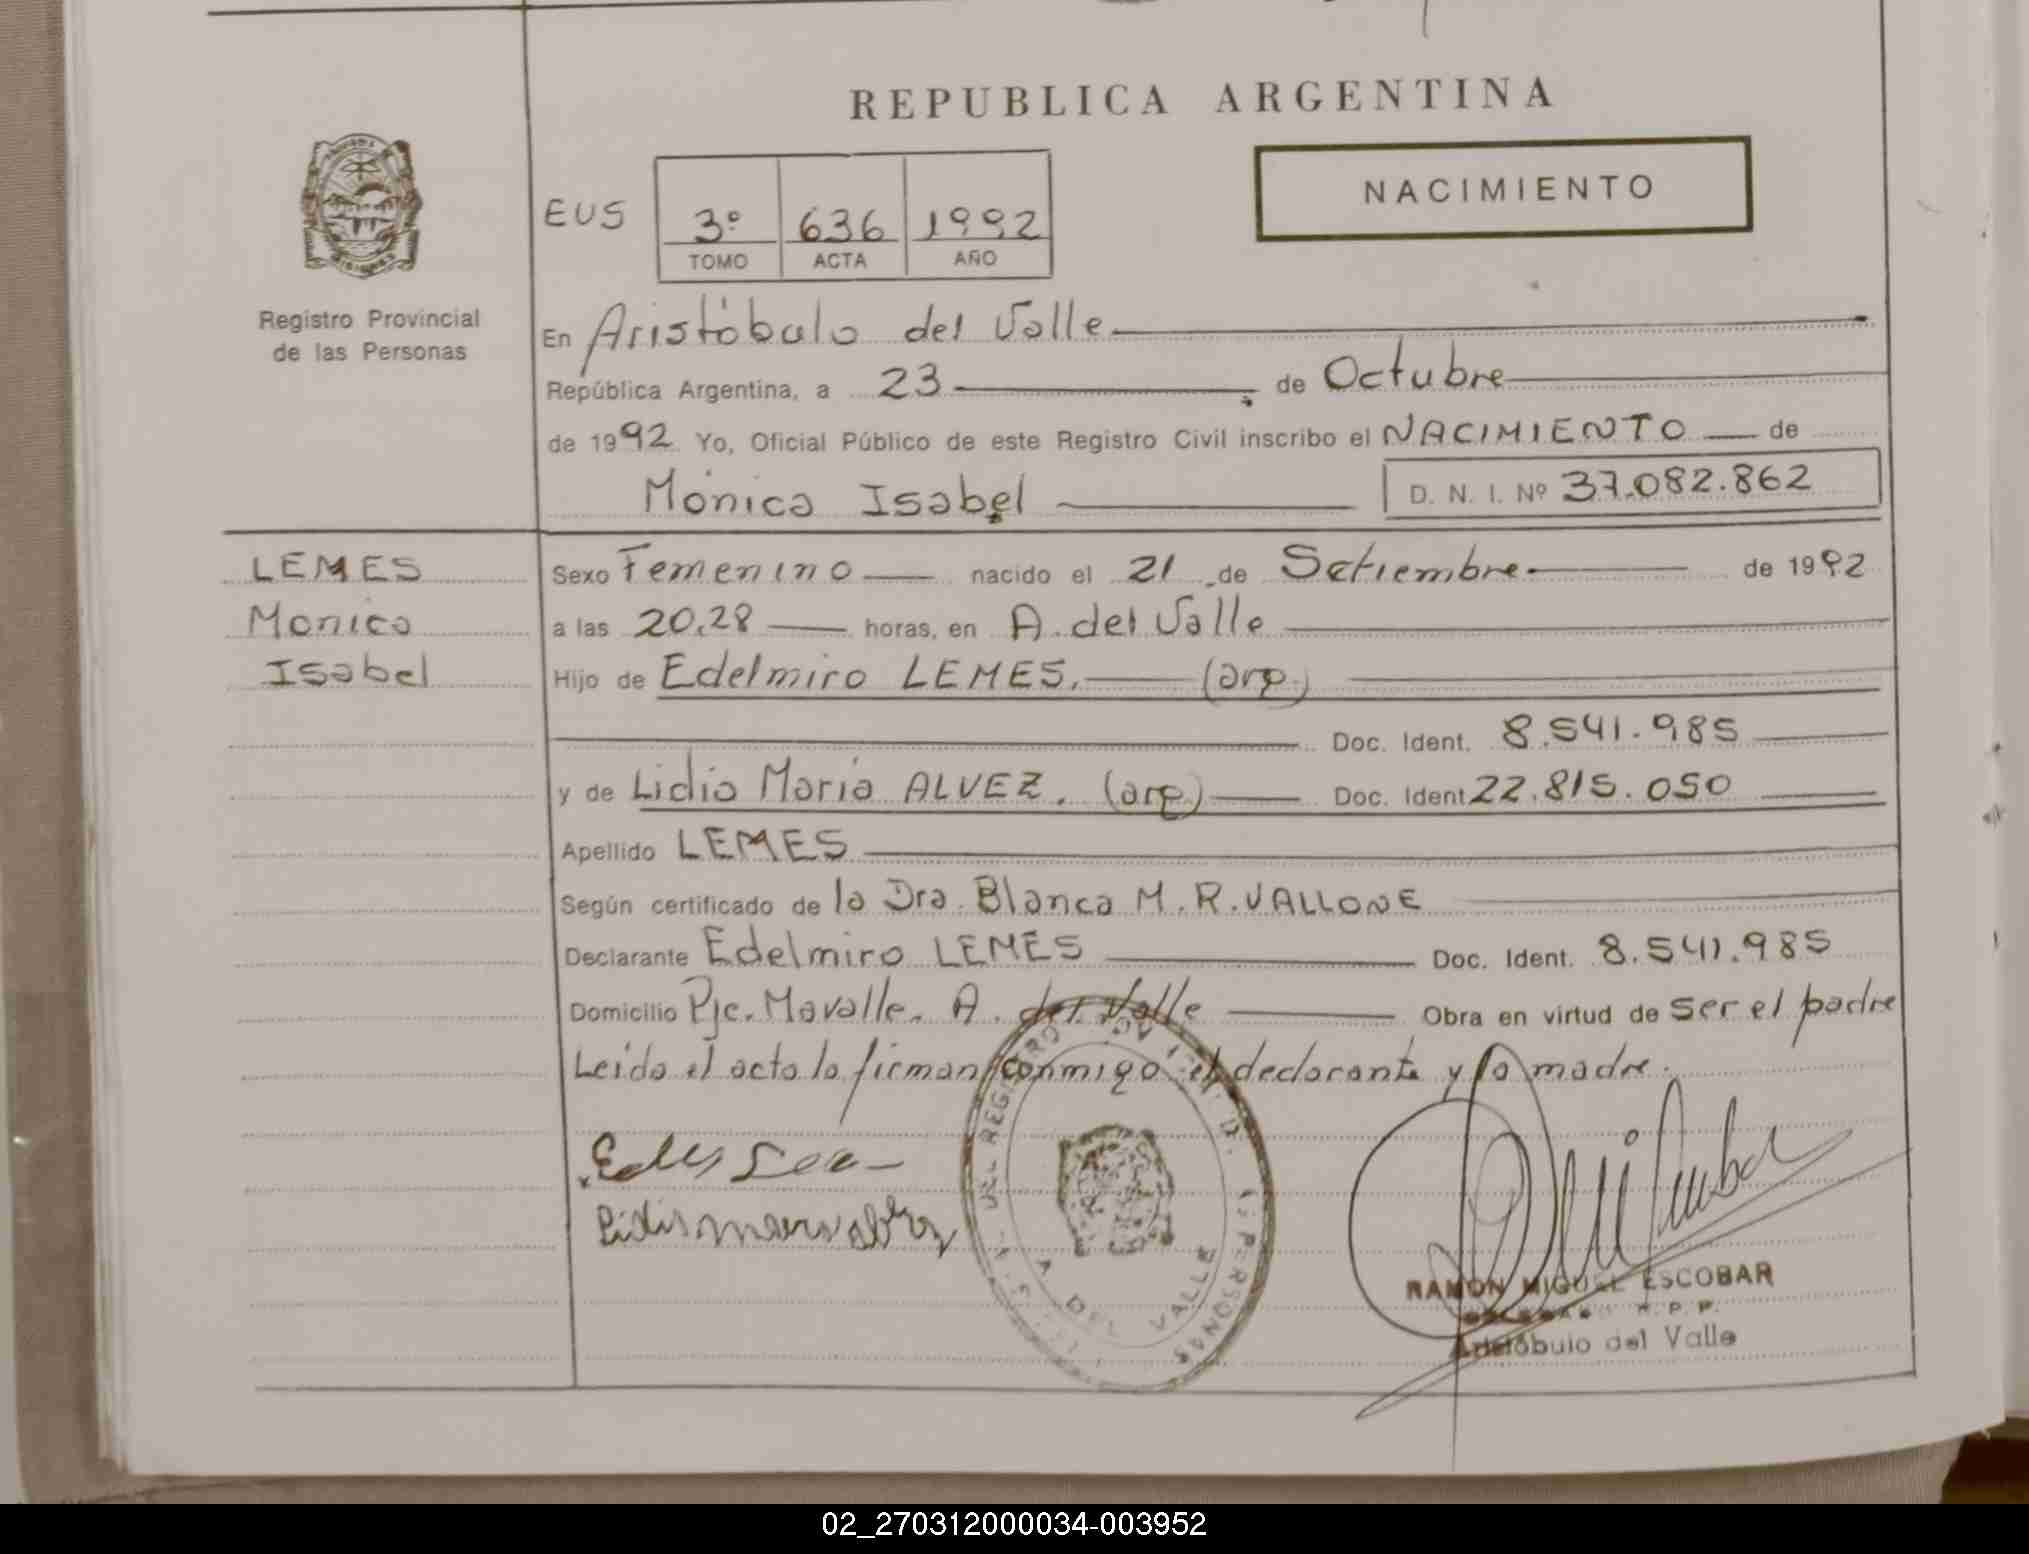 REPUBLICA ARGENTINA
NACIMIENTO
EUS
3º 636 1992
TOMO ACTA AÑO
Registro Provincial
de las Personas
En Aristóbulo del Valle
República Argentina, a 23 de Octubre
de 1992 Yo, Oficial Público de este Registro Civil inscribo el NACIMIENTO de
Mónica Isabel D. N. I. Nº 37.082.862
LEMES
Monica
Isabel
Sexo Femenino nacido el 21 de Setiembre de 1992
a las 20,28 horas, en A. del Valle
Hijo de Edelmiro LEMES. (arg.)
Doc. Ident. 8.541.985
y de Lidia María ALVEZ. (arg.) Doc. Ident 22.815.050
Apellido LEMES
Según certificado de la Dra. Blanca M. R. VALLONE
Declarante Edelmiro LEMES Doc. Ident. 8.541.985
Domicilio Pje. Mavalle. A. del Valle Obra en virtud de ser el padre
Leída el acta la firman conmigo el declarante y la madre.
DEL REGISTRO
PERSONAS
A. DEL VALLE
RAMON MIGUEL ESCOBAR
R. P. P.
Aristóbulo del Valle
02_270312000034-003952